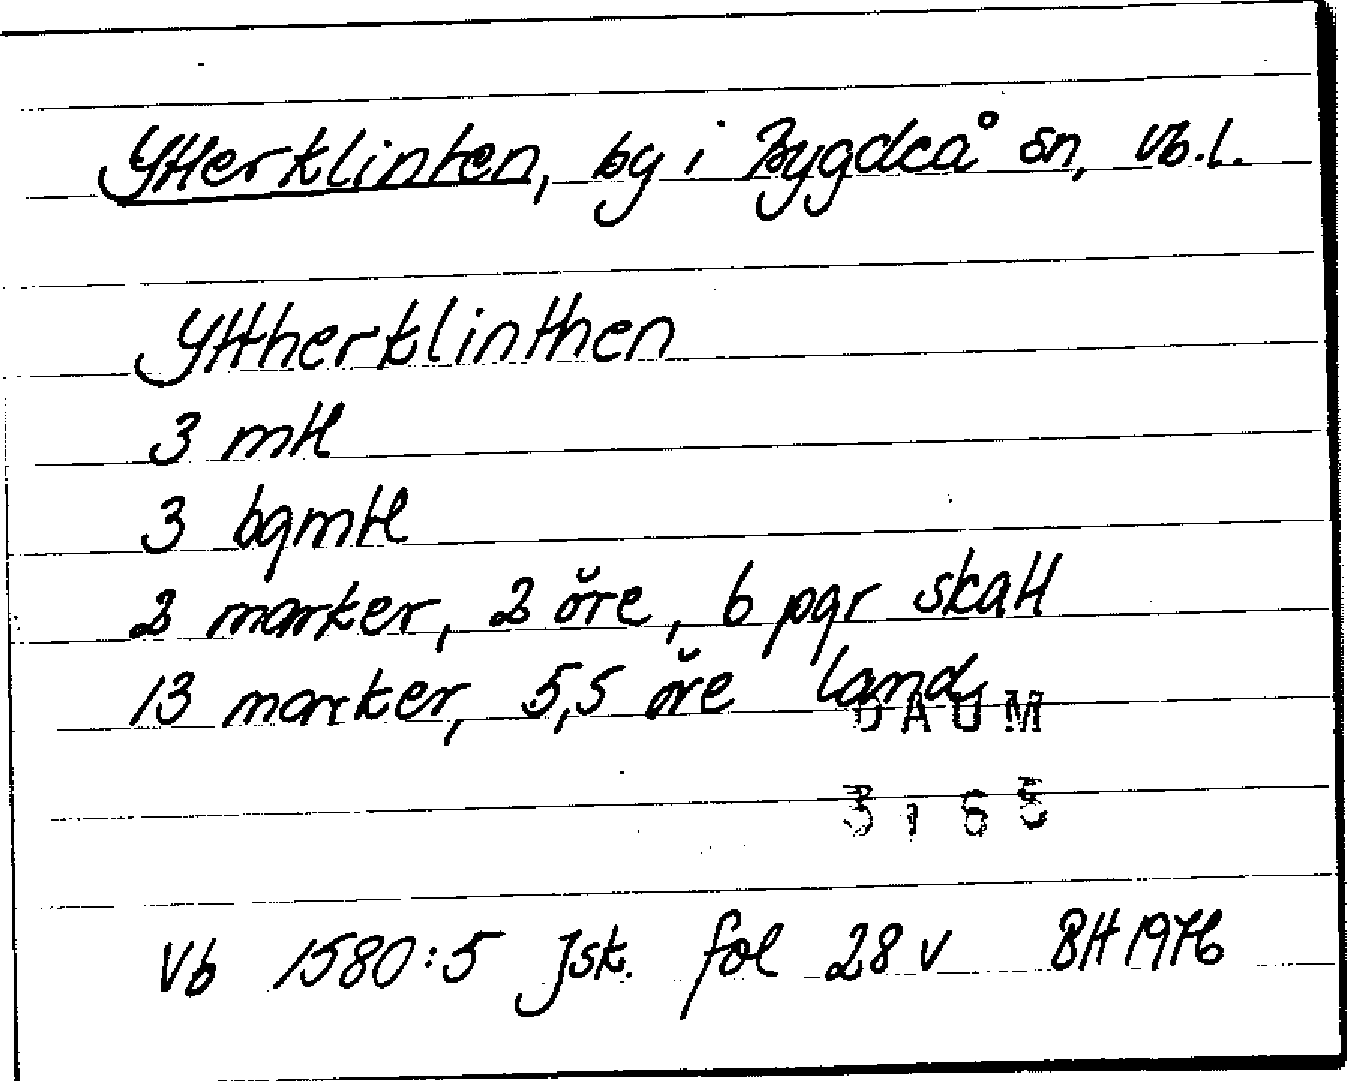 Ytterklinten, by i Bygdeå sn, Vb.l.
Yttherklinthen
3 mtl
3 bqmtl
2 marker, 2 öre, 6 pgr skatt
13 marker, 5,5 öre land
DAUM
3165
Vb 1580:5 Jsk. fol 28 v BH 1976